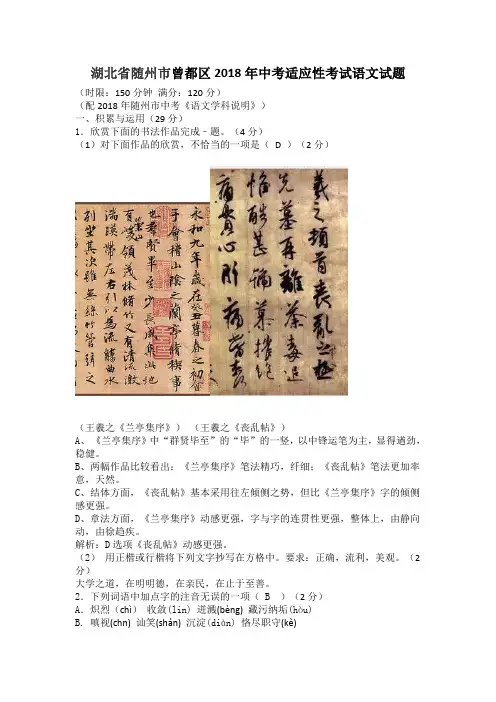 湖北省随州市曾都区2018年中考适应性考试语文试题
(时限：150分钟 满分：120分)
(配2018年随州市中考《语文学科说明》)
一、积累与运用(29分)
1．欣赏下面的书法作品完成﹣题。(4分)
(1)对下面作品的欣赏，不恰当的一项是( D )(2分)
永和九年歲在癸丑暮春之初會
于會稽山陰之蘭亭脩稧事
也羣賢畢至少長咸集此地
有崇山峻領茂林脩竹又有清流激
湍暎帶左右引以為流觴曲水
列坐其次雖無絲竹管弦之
羲之頓首喪亂之極
先墓再離荼毒追
惟酷甚號慕摧絕
痛貫心肝痛當奈
(王羲之《兰亭集序》) (王羲之《丧乱帖》)
A、《兰亭集序》中“群贤毕至”的“毕”的一竖，以中锋运笔为主，显得遒劲，
稳健。
B、两幅作品比较看出：《兰亭集序》笔法精巧，纤细；《丧乱帖》笔法更加率
意，天然。
C、结体方面，《丧乱帖》基本采用往左倾侧之势，但比《兰亭集序》字的倾侧
感更强。
D、章法方面，《兰亭集序》动感更强，字与字的连贯性更强，整体上，由静向
动，由徐趋疾。
解析：D选项《丧乱帖》动感更强。
(2) 用正楷或行楷将下列文字抄写在方格中。要求：正确，流利，美观。(2
分)
大学之道，在明明德，在亲民，在止于至善。
2．下列词语中加点字的注音无误的一项( B )(2分)
A．炽烈(chì) 收敛(lin) 迸溅(bèng) 藏污纳垢(hòu)
B. 嗔视(chn) 讪笑(shàn) 沉淀(diàn) 恪尽职守(kè)